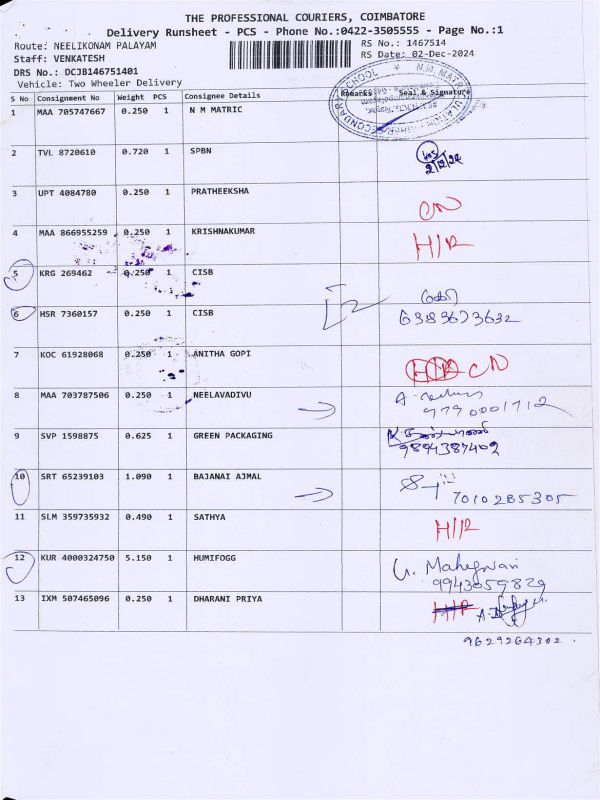 THE PROFESSIONAL COURIERS, COIMBATORE
Delivery Runsheet - PCS - Phone No.:0422-3505555 - Page No.:1
Route: NEELIKONAM PALAYAM
RS No.: 1467514
Staff: VENKATESH
RS Date: 02-Dec-2024
DRS No.: DCJB146751401
Vehicle: Two Wheeler Delivery
S No Consignment No Weight PCS Consignee Details Remarks Seal & Signature
1 MAA 705747667 0.250 1 N M MATRIC
2 TVL 8720610 0.720 1 SPBN
2/12/24
3 UPT 4084780 0.250 1 PRATHEEKSHA CN
4 MAA 866955259 0.250 1 KRISHNAKUMAR H/R
5 KRG 269462 0.250 1 CISB
6 HSR 7360157 0.250 1 CISB 6383673632
7 KOC 61928068 0.250 1 ANITHA GOPI H/R CN
8 MAA 703787506 0.250 1 NEELAVADIVU
9790001712
9 SVP 1598875 0.625 1 GREEN PACKAGING
9894387402
10 SRT 65239103 1.090 1 BAJANAI AJMAL
7010285305
11 SLM 359735932 0.490 1 SATHYA H/R
12 KUR 4000324750 5.150 1 HUMIFOGG G. Maheswari
9943059829
13 IXM 507465096 0.250 1 DHARANI PRIYA H/R
9629264302